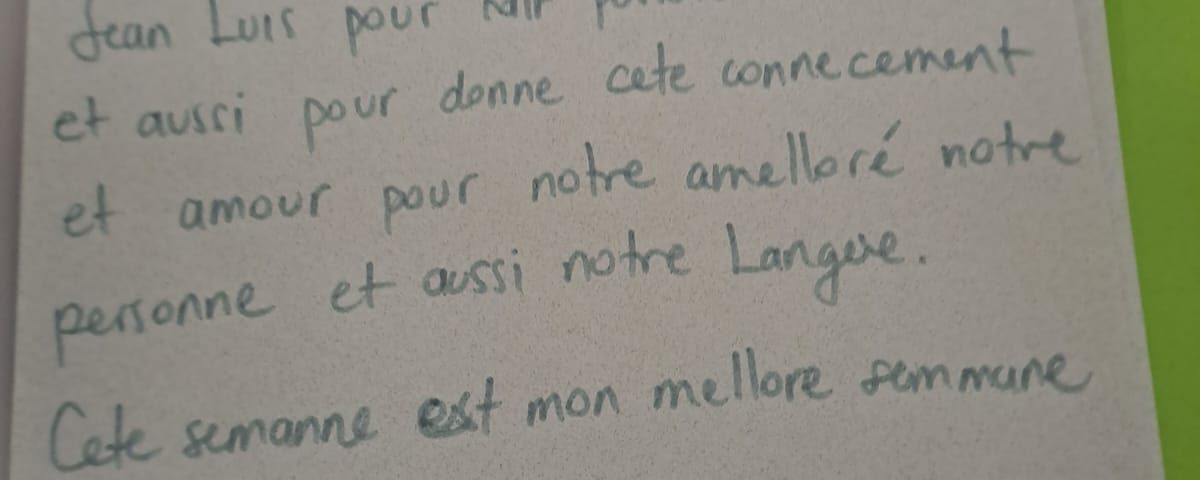 Jean Luis pour
et aussi pour donne cete connecement
et amour pour notre amelloré notre
personne et aussi notre Langue.
Cete semanne est mon mellore semmane